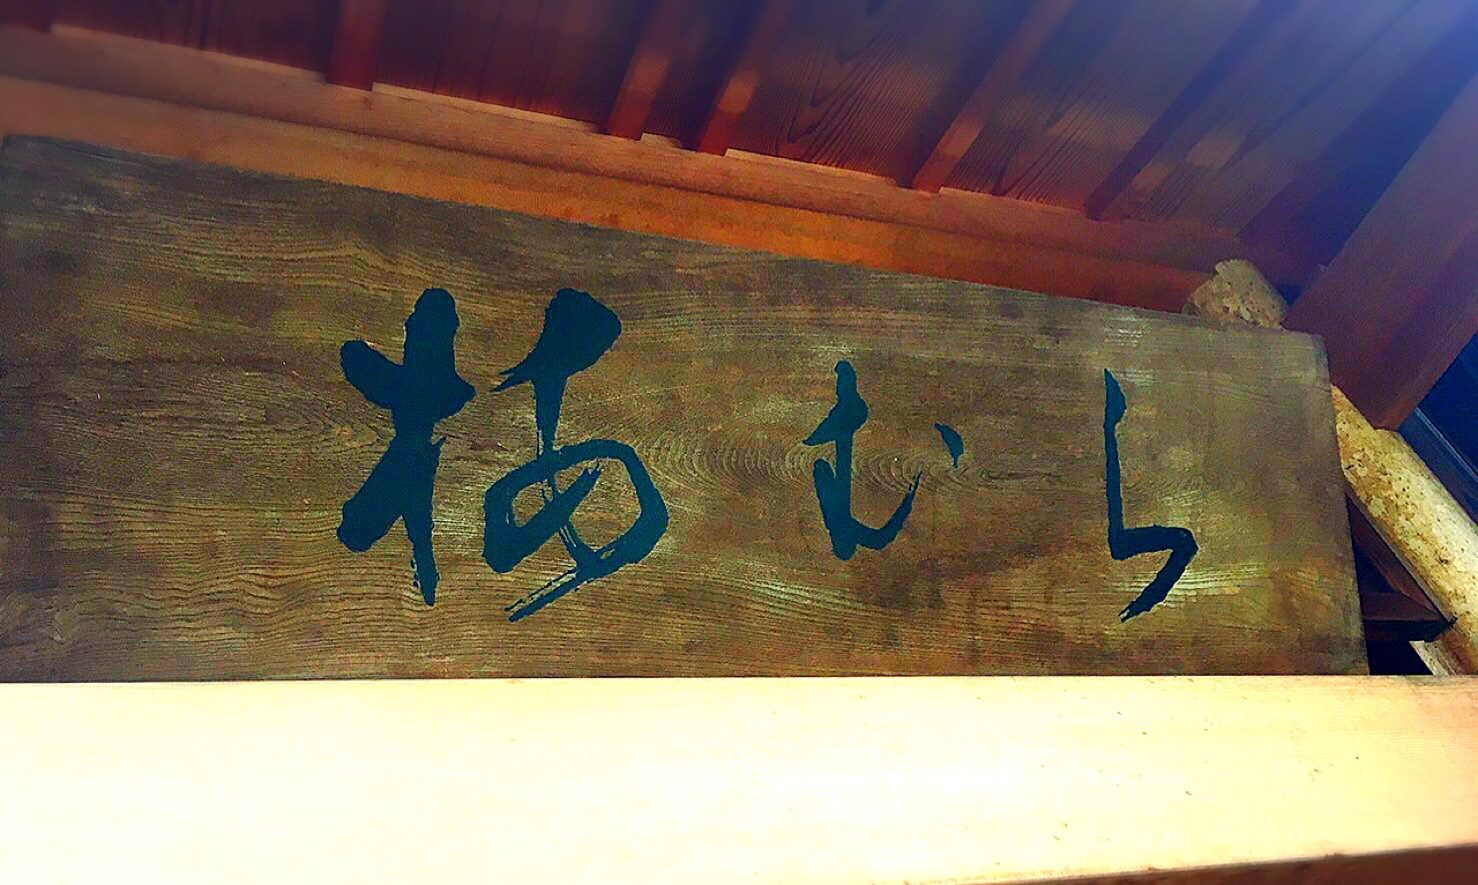 梅むら